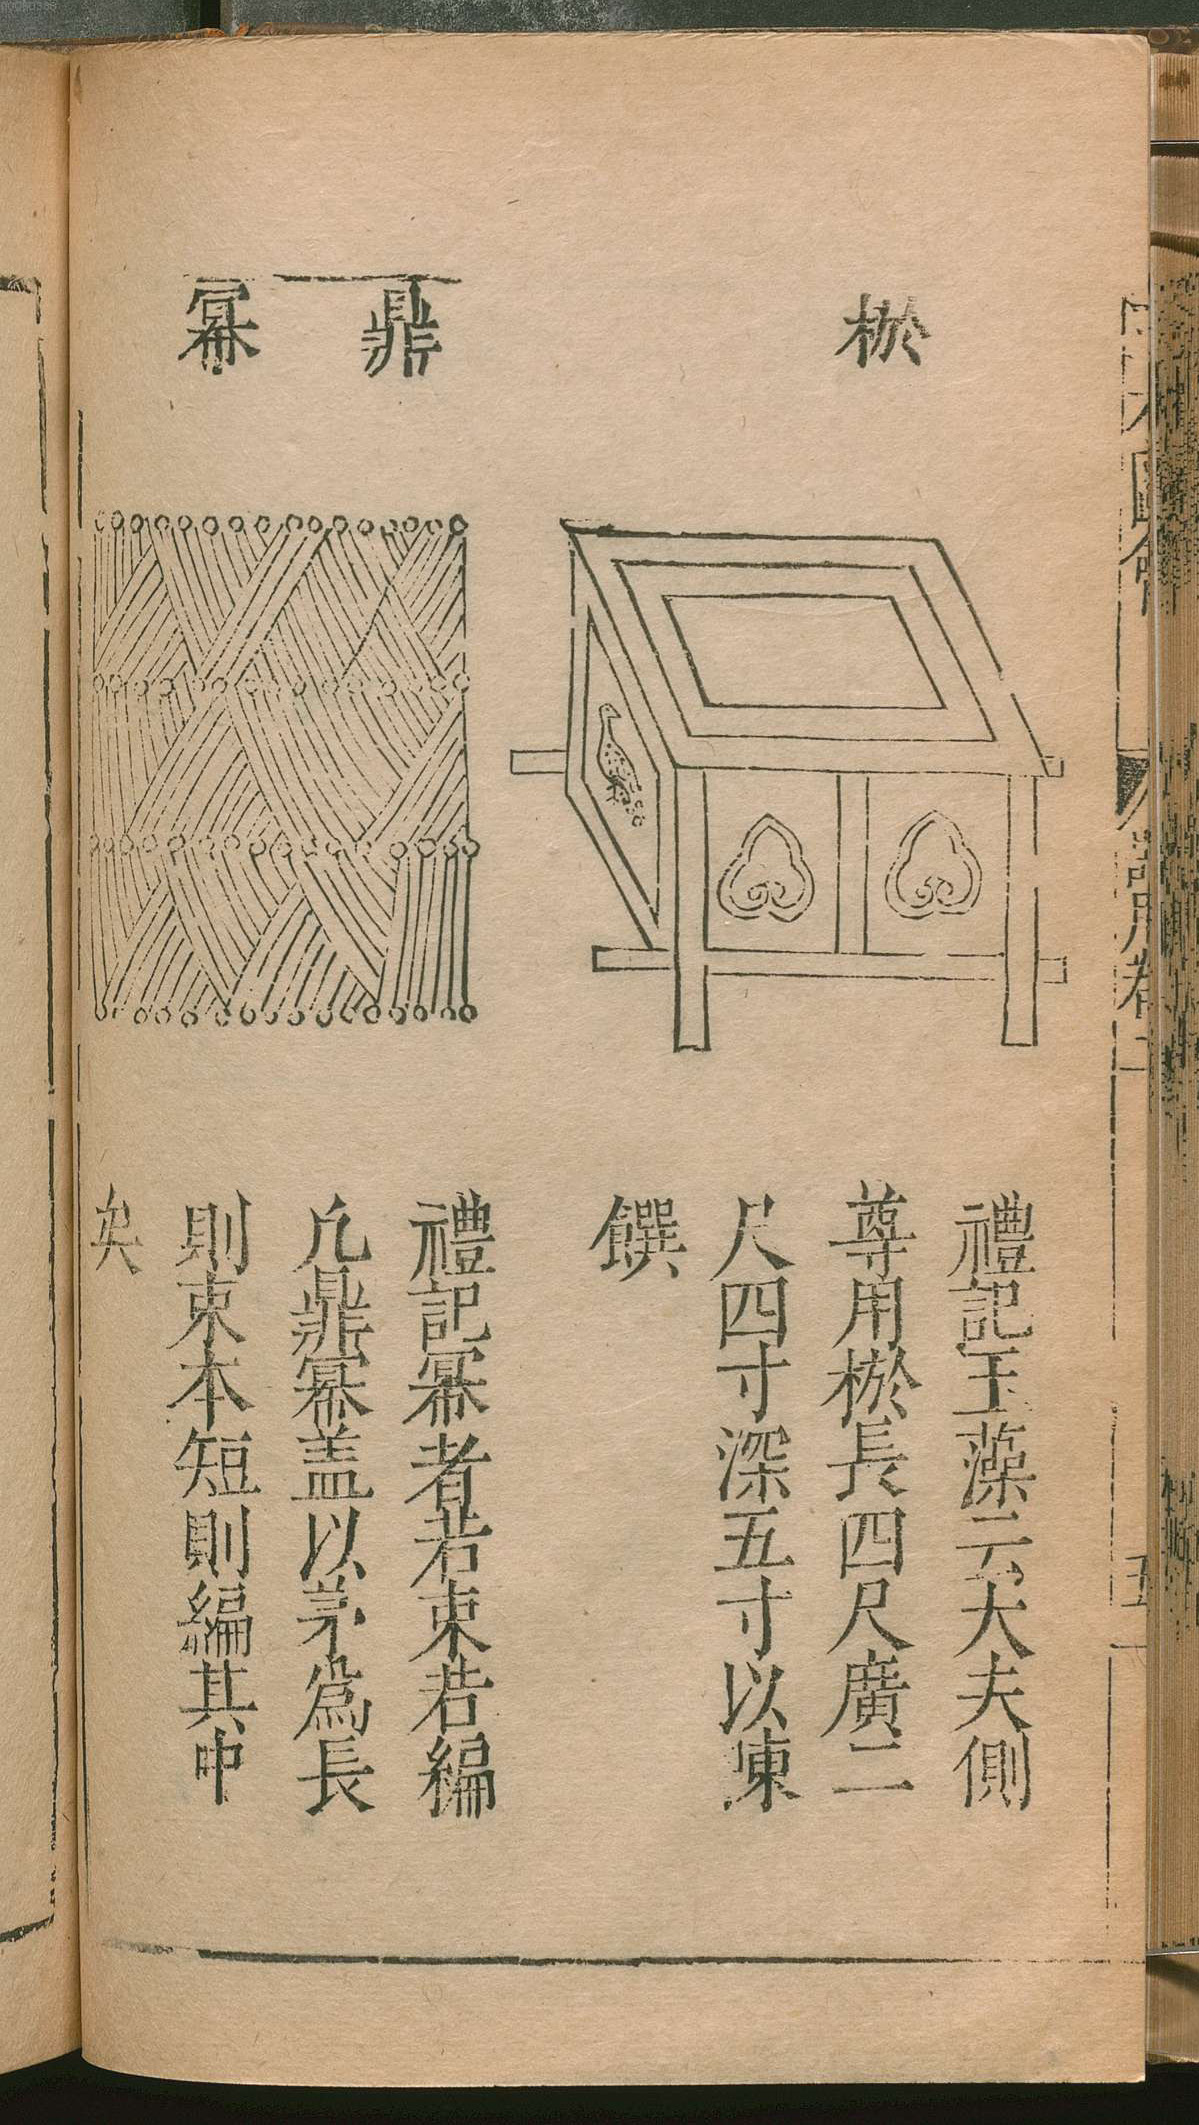 棜
禮記玉藻云大夫側
尊用棜長四尺廣二
尺四寸深五寸以陳
饌
鼎
冪
禮記冪者若束若編
凡鼎冪盖以茅爲長
則束本短則編其中
矣